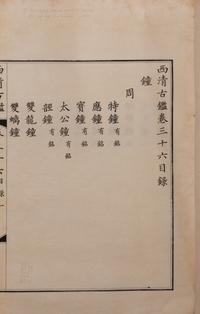 西清古鑑卷三十六目錄
鐘
周
特鐘有銘
應鐘有銘
寶鐘有銘
太公鐘有銘
經鐘有銘
雙龍鐘
雙螭鐘